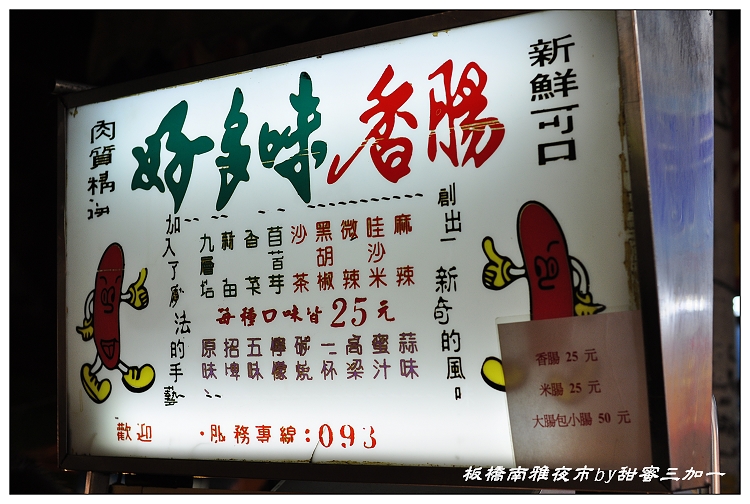 好多味香腸
新鮮可口
肉質精
創出一新奇的風口
麻辣
哇沙米
微辣
黑胡椒
沙茶
苜蓿芽
香菜
九層塔
加入了魔法的手藝
每種口味皆25元
蒜味
蜜汁
高粱
一杯
碳燒
檸檬
五味
招牌
原味
歡迎
·服務專線:093
香腸 25 元
米腸 25 元
大腸包小腸 50 元
板橋南雅夜市by甜蜜三加一